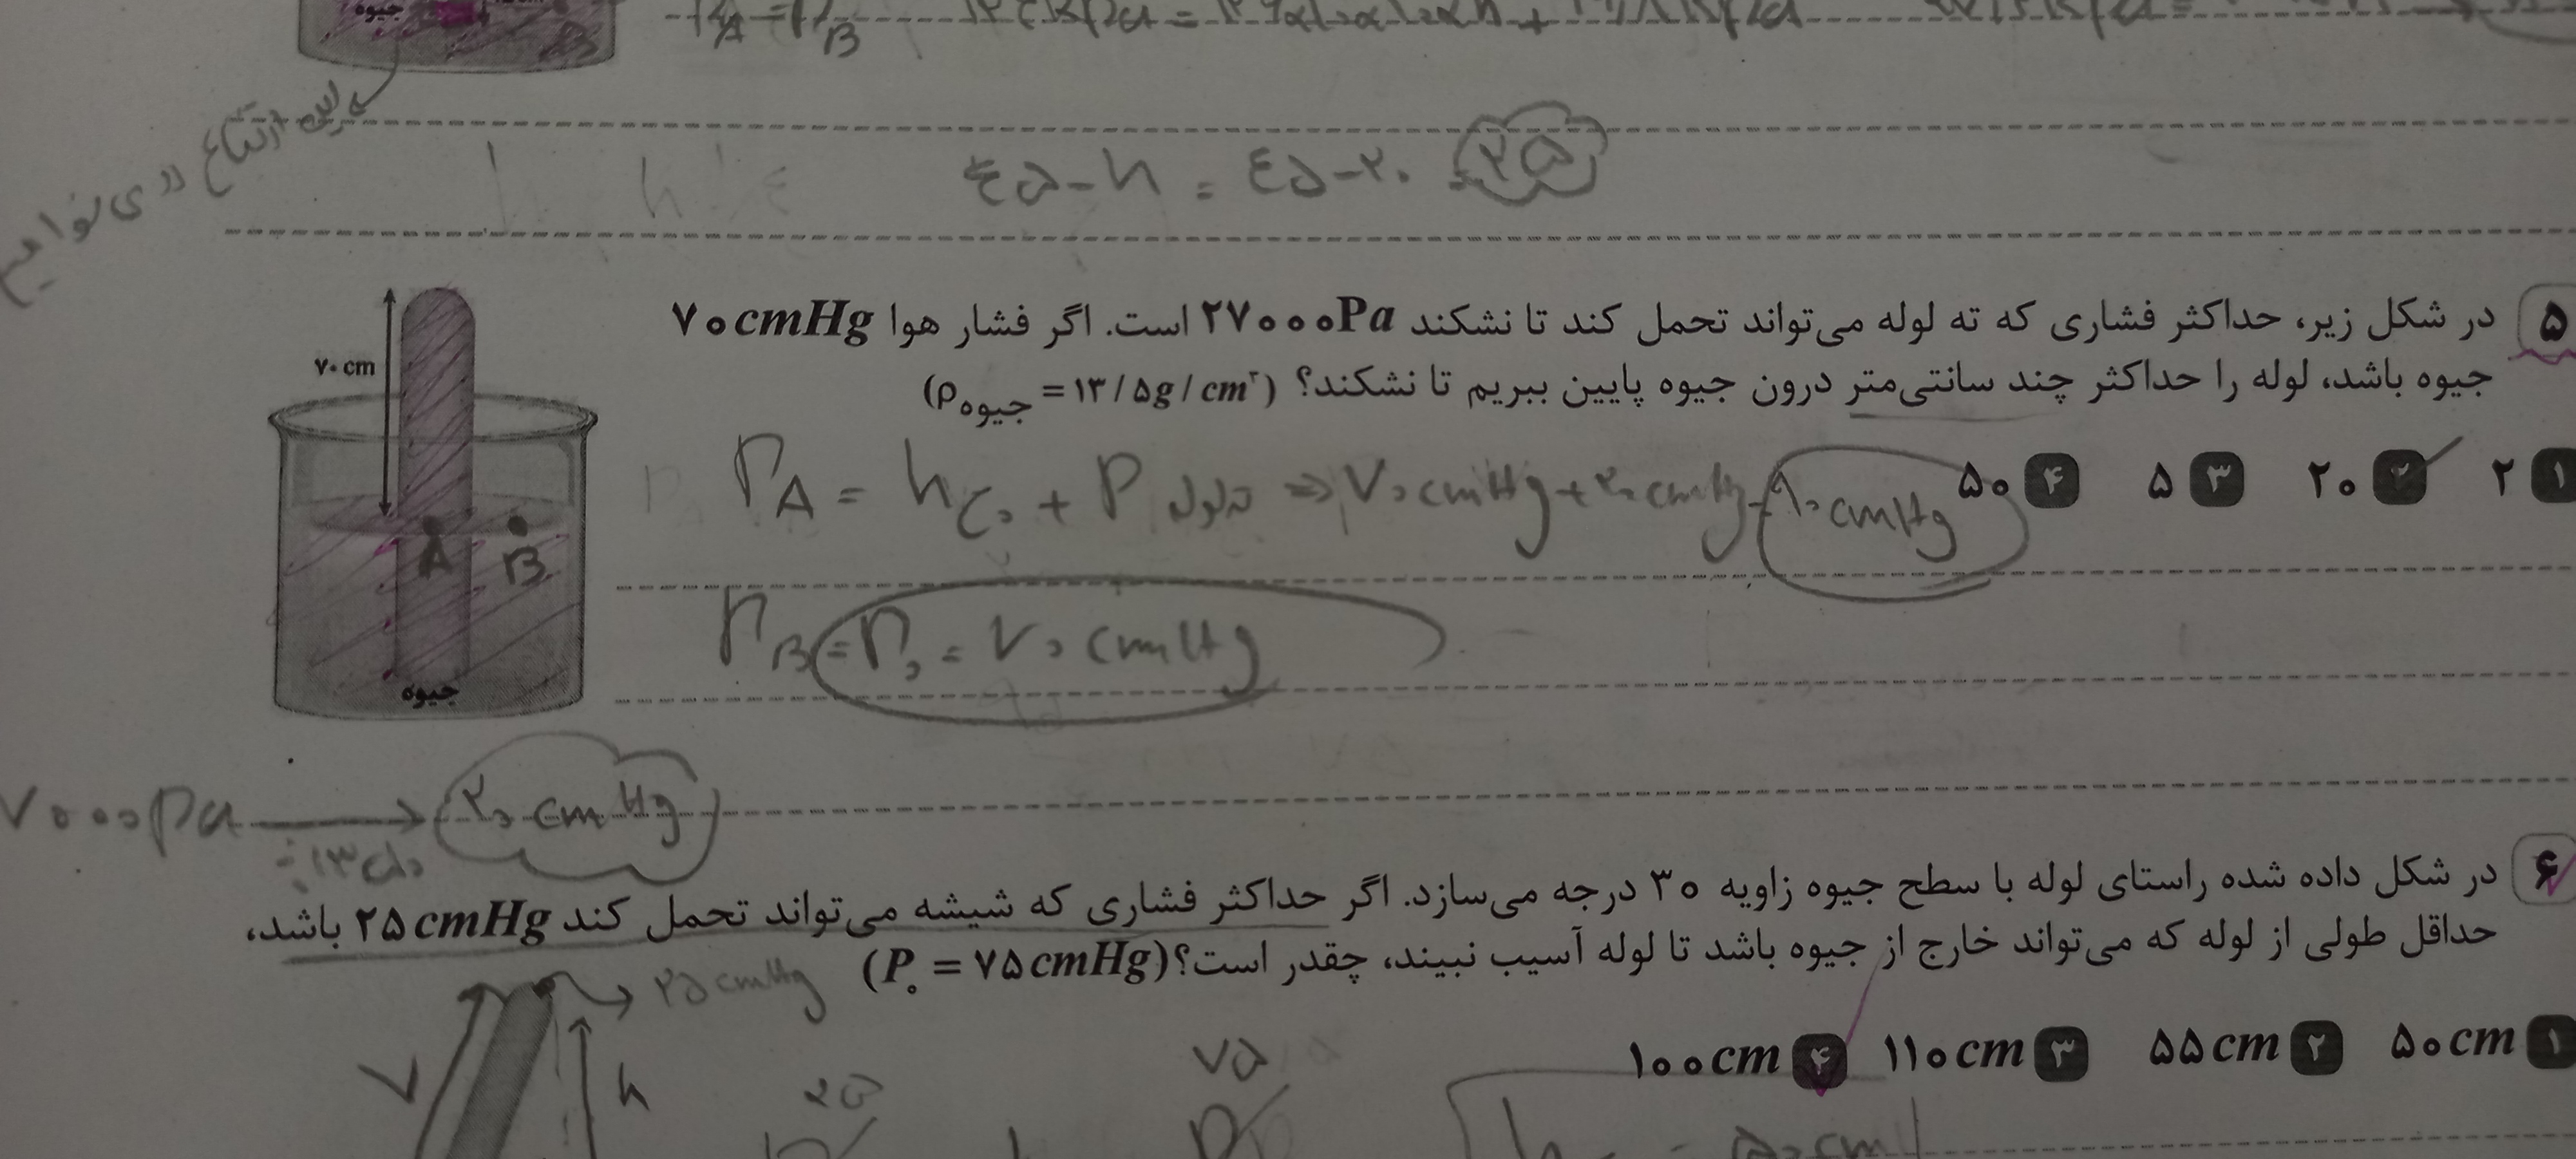 جیوه
P_A = P_B
این ارتفاع رو می‌خواهیم
۴۵-h = ۴۵-۲۰ = ۲۵
۵ در شکل زیر، حداکثر فشاری که ته لوله می‌تواند تحمل کند تا نشکند ۲۷۰۰۰Pa است. اگر فشار هوا ۷۰cmHg
جیوه باشد، لوله را حداکثر چند سانتی‌متر درون جیوه پایین ببریم تا نشکند؟ (ρجیوه = ۱۳/۵g/cm³)
۱ ۲ ۲ ۲۰ ۳ ۵ ۴ ۵۰
۷۰cm
P_A = h + P ته لوله ⇒ ۷۰cmHg + ۲۰cmHg = ۹۰cmHg
A B
P_B = P₀ = ۷۰cmHg
جیوه
۷۰۰۰Pa → ۲۰cmHg
۶ در شکل داده شده راستای لوله با سطح جیوه زاویه ۳۰ درجه می‌سازد. اگر حداکثر فشاری که شیشه می‌تواند تحمل کند ۲۵cmHg باشد،
حداقل طولی از لوله که می‌تواند خارج از جیوه باشد تا لوله آسیب نبیند، چقدر است؟ (P₀ = ۷۵cmHg)
۲۵cmHg
۱ ۵۰cm ۲ ۵۵cm ۳ ۱۱۰cm ۴ ۱۰۰cm
h
۲۵ ۷۵